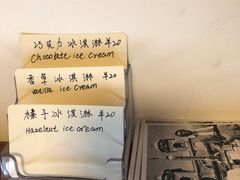 巧克力冰淇淋 ¥20
Chocolate ice cream
香草冰淇淋 ¥20
vanilla ice cream
榛子冰淇淋 ¥20
Hazelnut ice cream